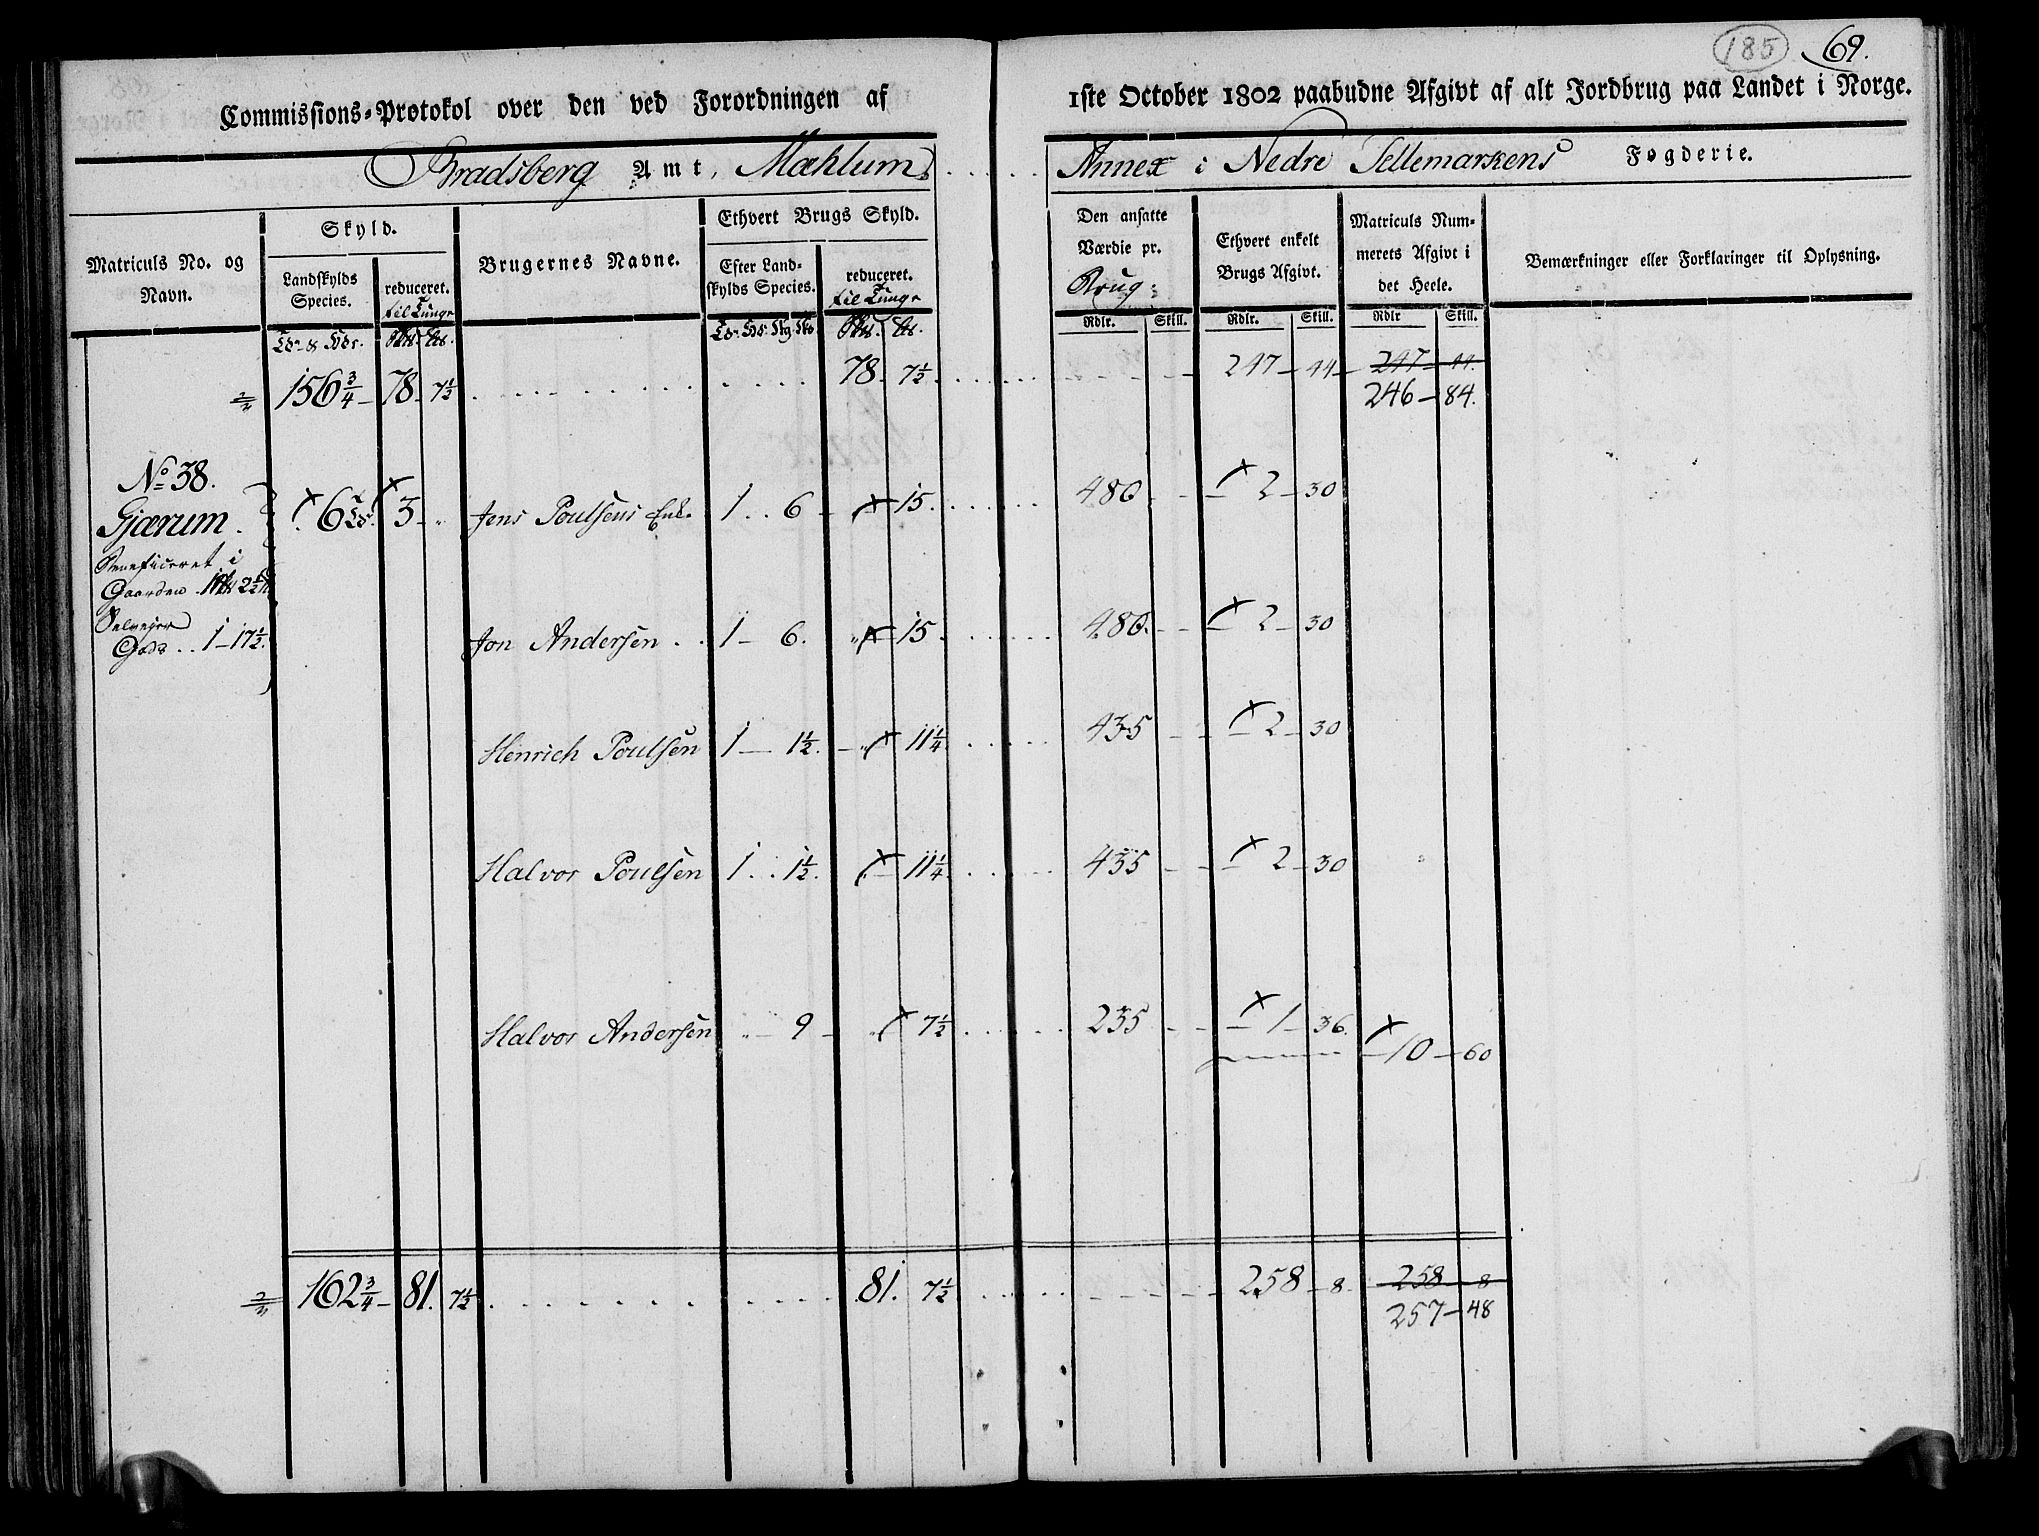 185 69.
Commissions-Protokol over den ved Forordningen af 1ste October 1802 paabudne Afgivt af alt Jordbrug paa Landet i Norge.
Bradsberg Amt, Mæhlum Annex i Nedre Tellemarkens Fogderie.
Matriculs No. og Navn.
Skyld.
Landskylds Species.
reduceret. til Tunge
Brugernes Navne.
Ethvert Brugs Skyld.
Efter Landskylds Species.
reduceret. til Tunge
Den ansatte Værdie pr. Brug:
Ethvert enkelt Brugs Afgivt.
Matriculs Nummerets Afgivt i det Heele.
Bemærkninger eller Forklaringer til Oplysning.
Rdlr. Skill. Rdlr. Skill. Rdlr Skill.
156 3/4 78 7 1/2 78 7 1/2 247 44 247 44.
246 84.
No 38.
Gjærum. 6 3 Jens Poulsens Enk. 1 6 15. 480 2 30
Beneficeret i
Gaarden 1 2 1/2
Selveier
Gods 1 17 1/2.
Jon Andersen 1 6. 15. 480. 2 30
Hinrich Poulsen 1 1 1/2. 11 1/4 435 2 30
Halvor Poulsen 1 1 1/2. 11 1/4 435 2 30
Halvor Andersen 9 7 1/2 235 1 36.
10 60
162 3/4 81. 7 1/2 81. 7 1/2 258 8. 258 8
257 48